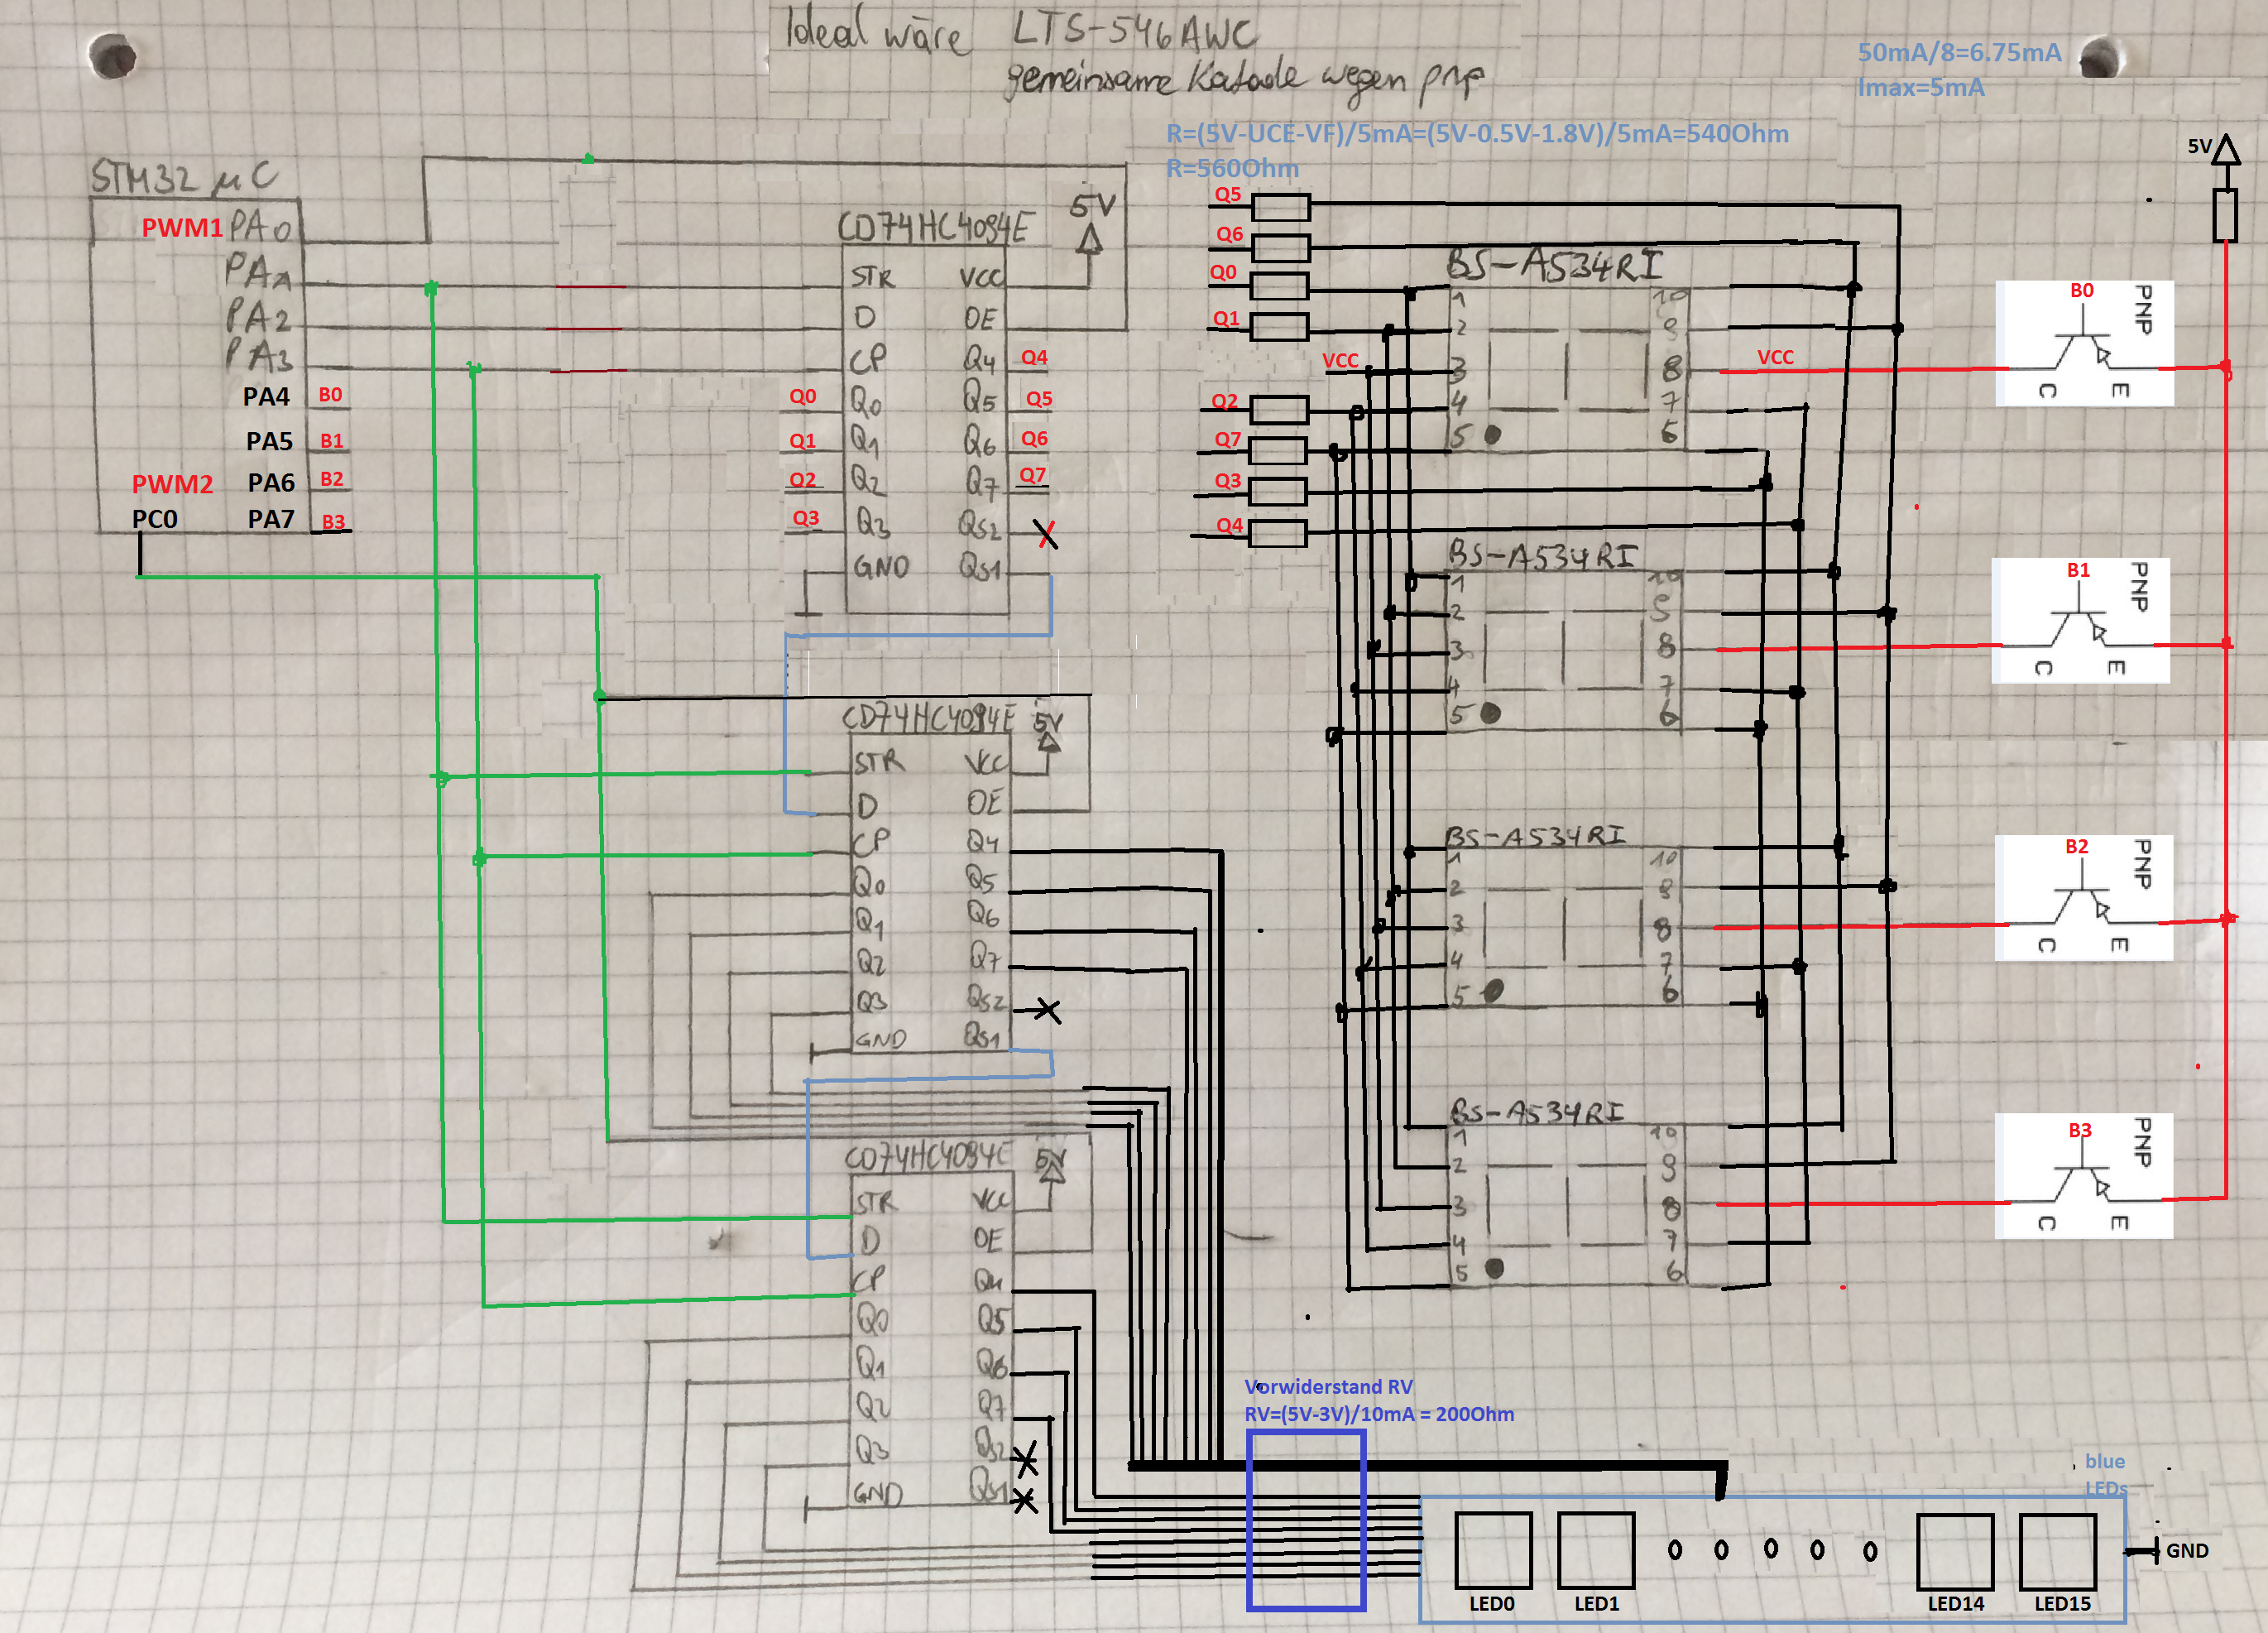 Ideal wäre LTS-546AWC
gemeinsame Katode wegen pnp
50mA/8=6.75mA
Imax=5mA
R=(5V-UCE-VF)/5mA=(5V-0.5V-1.8V)/5mA=540Ohm
R=560Ohm
STM32 µC
PWM1 PA0
PA1
PA2
PA3
PA4 B0
PA5 B1
PWM2 PA6 B2
PC0 PA7 B3
CD74HC4094E
5V
STR VCC
D OE
CP Q4 Q4
Q0 Q0 Q5 Q5
Q1 Q1 Q6 Q6
Q2 Q2 Q7 Q7
Q3 Q3 QS2
GND QS1
CD74HC4094E
5V
STR VCC
D OE
CP Q4
Q0 Q5
Q1 Q6
Q2 Q7
Q3 QS2
GND QS1
CD74HC4094E
5V
STR VCC
D OE
CP Q4
Q0 Q5
Q1 Q6
Q2 Q7
Q3 QS2
GND QS1
Q5
Q6
Q0
Q1
VCC
Q2
Q7
Q3
Q4
BS-A534RI
1 10
2 9
3 8 VCC
4 7
5 6
BS-A534RI
1 10
2 9
3 8
4 7
5 6
BS-A534RI
1 10
2 9
3 8
4 7
5 6
BS-A534RI
1 10
2 9
3 8
4 7
5 6
5V
B0 PNP
C E
B1 PNP
C E
B2 PNP
C E
B3 PNP
C E
Vorwiderstand RV
RV=(5V-3V)/10mA = 200Ohm
blue
LEDs
LED0 LED1 LED14 LED15
GND